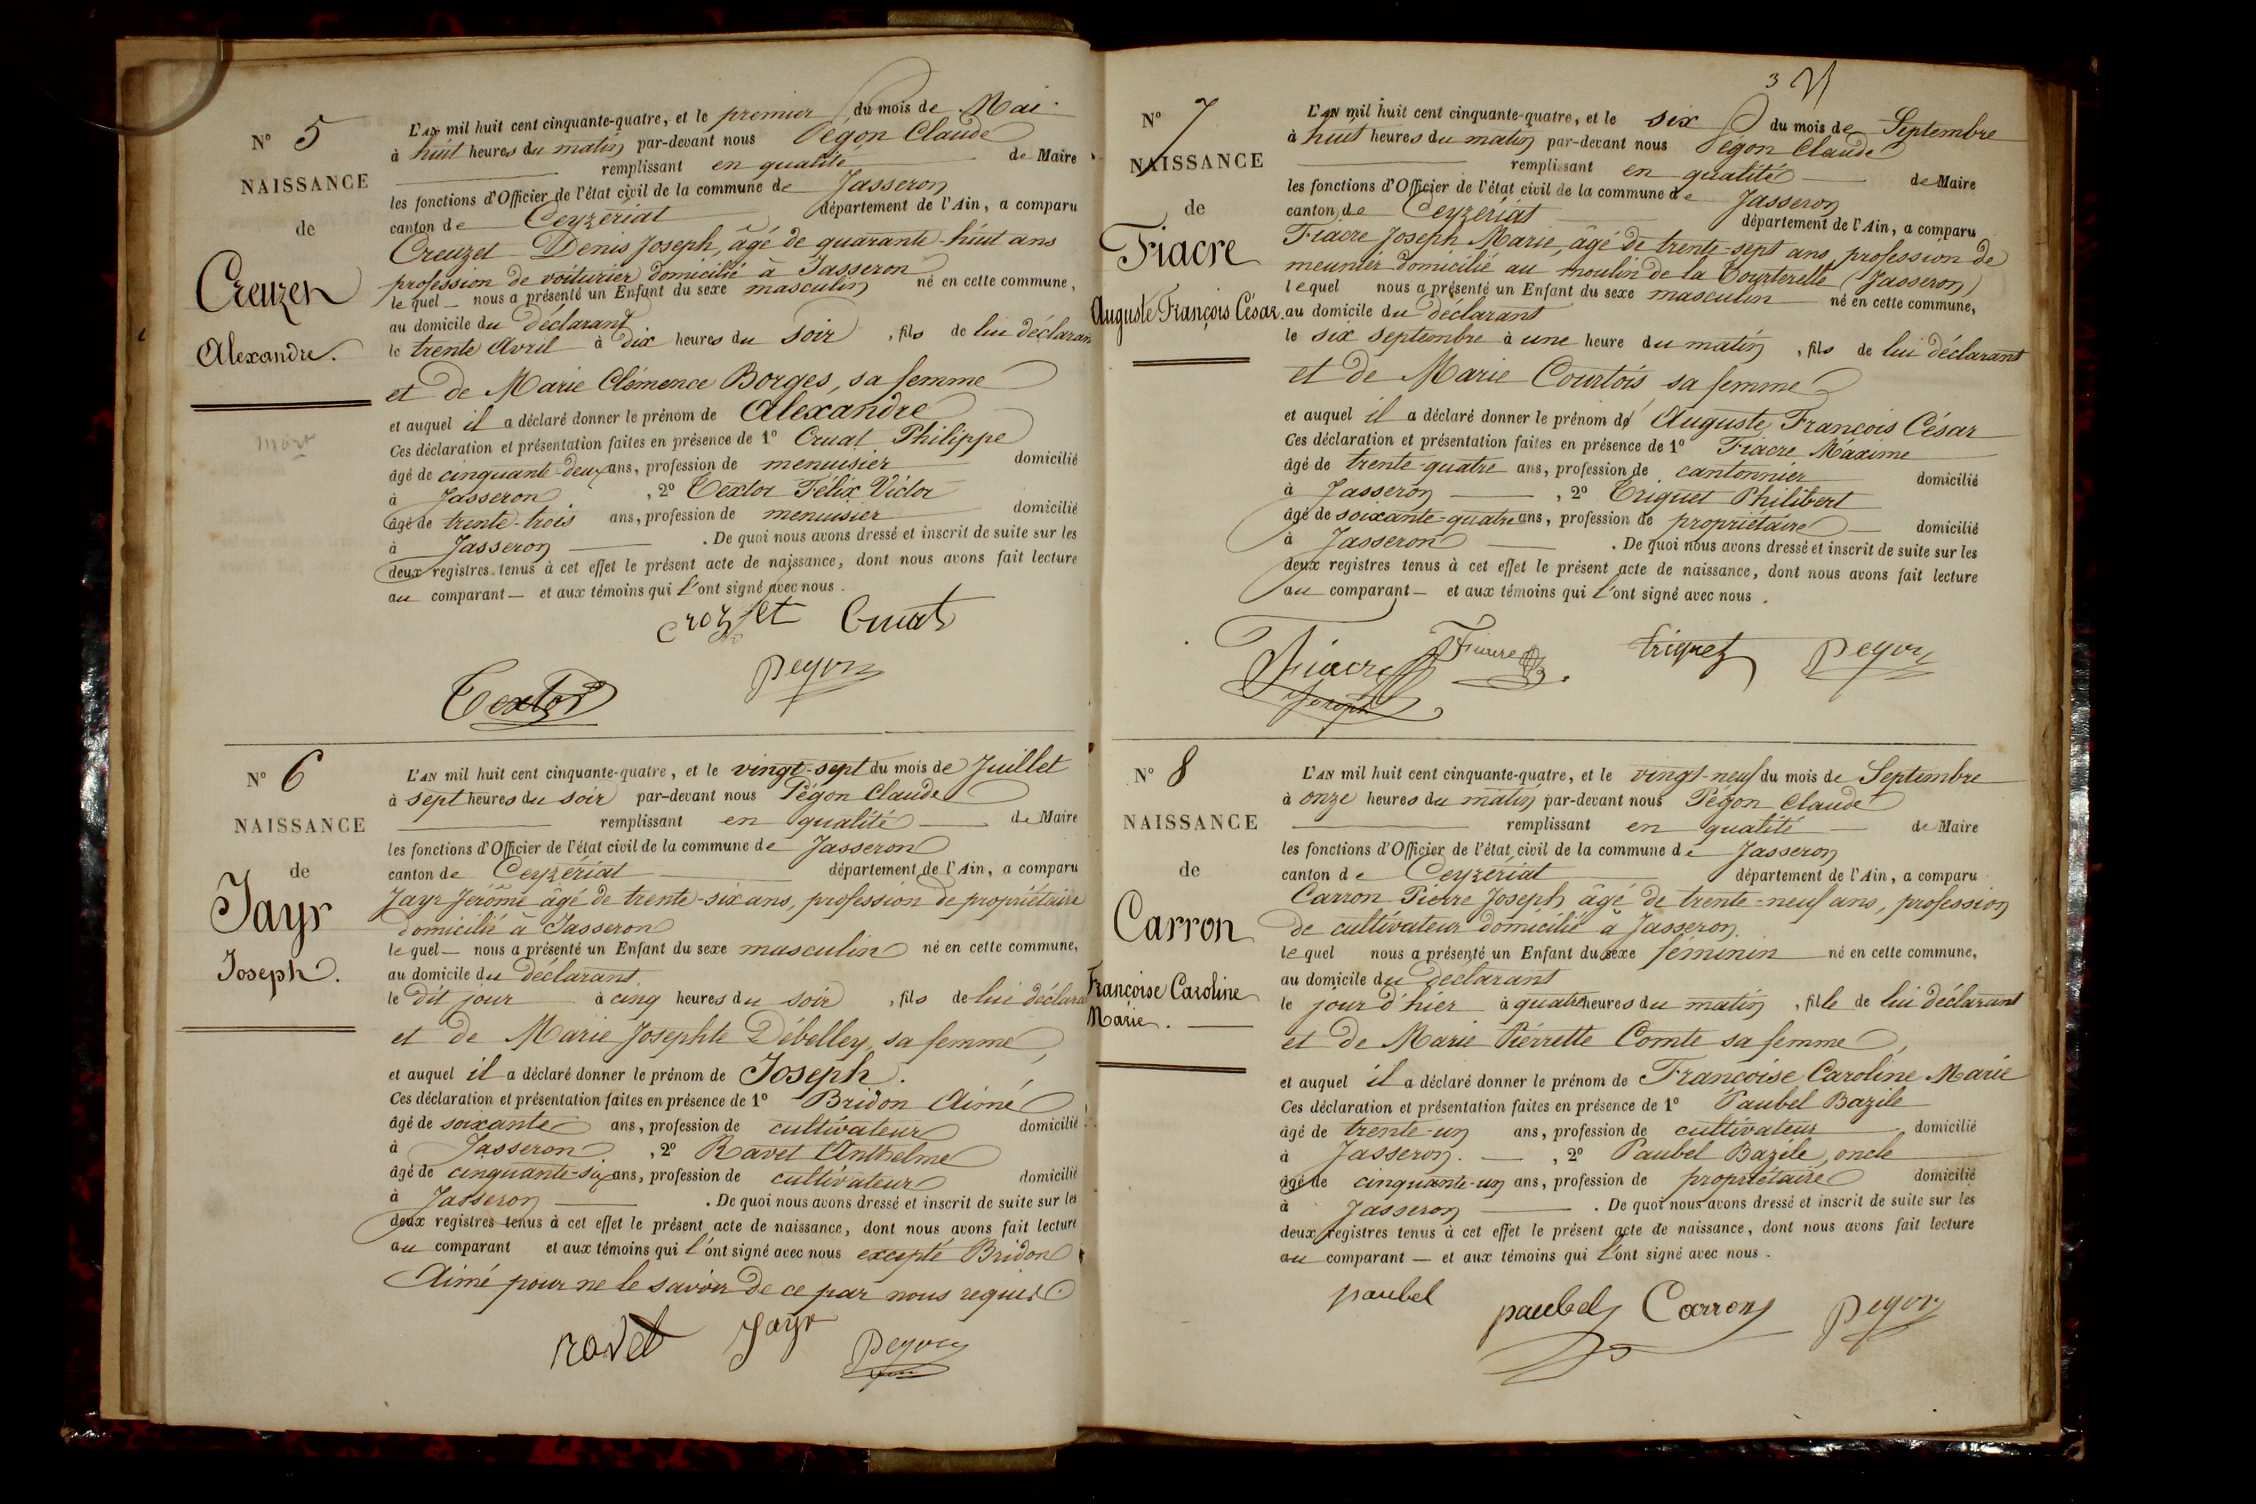 N° 5
NAISSANCE
de
Creuzet
Alexandre.
mort
L'AN mil huit cent cinquante-quatre, et le premier du mois de Mai
à huit heures du matin par-devant nous Pégon Claude
remplissant en qualité de Maire
les fonctions d'Officier de l'état civil de la commune de Jasseron
canton de Ceyzériat département de l'Ain, a comparu
Creuzet Denis Joseph, âgé de quarante-huit ans
profession de voiturier domicilié à Jasseron
le quel nous a présenté un Enfant du sexe masculin né en cette commune,
au domicile du déclarant
le trente Avril à dix heures du soir, fils de lui déclarant
et de Marie Clémence Borges, sa femme
et auquel il a déclaré donner le prénom de Alexandre
Ces déclaration et présentation faites en présence de 1° Cruat Philippe
âgé de cinquante-deux ans, profession de menuisier domicilié
à Jasseron, 2° Textor Félix Victor
âgé de trente-trois ans, profession de menuisier domicilié
à Jasseron. De quoi nous avons dressé et inscrit de suite sur les
deux registres tenus à cet effet le présent acte de naissance, dont nous avons fait lecture
au comparant et aux témoins qui l'ont signé avec nous.
crozet Cruat
Textor pegon
N° 6
NAISSANCE
de
Jayr
Joseph.
L'AN mil huit cent cinquante-quatre, et le vingt-sept du mois de Juillet
à sept heures du soir par-devant nous Pégon Claude
remplissant en qualité de Maire
les fonctions d'Officier de l'état civil de la commune de Jasseron
canton de Ceyzériat département de l'Ain, a comparu
Jayr Jérôme âgé de trente-six ans, profession de propriétaire
domicilié à Jasseron
le quel nous a présenté un Enfant du sexe masculin né en cette commune,
au domicile du déclarant
le dit jour à cinq heures du soir, fils de lui déclarant
et de Marie Josephte Débelley, sa femme,
et auquel il a déclaré donner le prénom de Joseph.
Ces déclaration et présentation faites en présence de 1° Bridon Aimé
âgé de soixante ans, profession de cultivateur domicilié
à Jasseron, 2° Ravet Anthelme
âgé de cinquante-six ans, profession de cultivateur domicilié
à Jasseron. De quoi nous avons dressé et inscrit de suite sur les
deux registres tenus à cet effet le présent acte de naissance, dont nous avons fait lecture
au comparant et aux témoins qui l'ont signé avec nous excepté Bridon
Aimé pour ne le savoir de ce par nous requis.
ravet Jayr pegon
3
N° 7
NAISSANCE
de
Fiacre
Auguste François César.
L'AN mil huit cent cinquante-quatre, et le six du mois de Septembre
à huit heures du matin par-devant nous Pégon Claude
remplissant en qualité de Maire
les fonctions d'Officier de l'état civil de la commune de Jasseron
canton de Ceyzériat département de l'Ain, a comparu
Fiacre Joseph Marie, âgé de trente-sept ans, profession de
meunier domicilié au moulin de la Tourterelle (Jasseron)
lequel nous a présenté un Enfant du sexe masculin né en cette commune,
au domicile du déclarant
le six septembre à une heure du matin, fils de lui déclarant
et de Marie Courtois, sa femme
et auquel il a déclaré donner le prénom de Auguste, François César
Ces déclaration et présentation faites en présence de 1° Fiacre Maxime
âgé de trente-quatre ans, profession de cantonnier domicilié
à Jasseron, 2° Triquet Philibert
âgé de soixante-quatre ans, profession de propriétaire domicilié
à Jasseron. De quoi nous avons dressé et inscrit de suite sur les
deux registres tenus à cet effet le présent acte de naissance, dont nous avons fait lecture
au comparant et aux témoins qui l'ont signé avec nous.
Fiacre Joseph Fiacre triquet pegon
N° 8
NAISSANCE
de
Carron
Françoise Caroline
Marie.
L'AN mil huit cent cinquante-quatre, et le vingt-neuf du mois de Septembre
à onze heures du matin par-devant nous Pégon Claude
remplissant en qualité de Maire
les fonctions d'Officier de l'état civil de la commune de Jasseron
canton de Ceyzériat département de l'Ain, a comparu
Carron Pierre Joseph âgé de trente-neuf ans, profession
de cultivateur domicilié à Jasseron.
lequel nous a présenté un Enfant du sexe féminin né en cette commune,
au domicile du déclarant
le jour d'hier à quatre heures du matin, fille de lui déclarant
et de Marie Pierrette Comte sa femme,
et auquel il a déclaré donner le prénom de Françoise Caroline Marie
Ces déclaration et présentation faites en présence de 1° Paubel Bazile
âgé de trente-un ans, profession de cultivateur domicilié
à Jasseron., 2° Paubel Bazile, oncle
âgé de cinquante-un ans, profession de propriétaire domicilié
à Jasseron. De quoi nous avons dressé et inscrit de suite sur les
deux registres tenus à cet effet le présent acte de naissance, dont nous avons fait lecture
au comparant et aux témoins qui l'ont signé avec nous.
paubel paubel Carron pegon